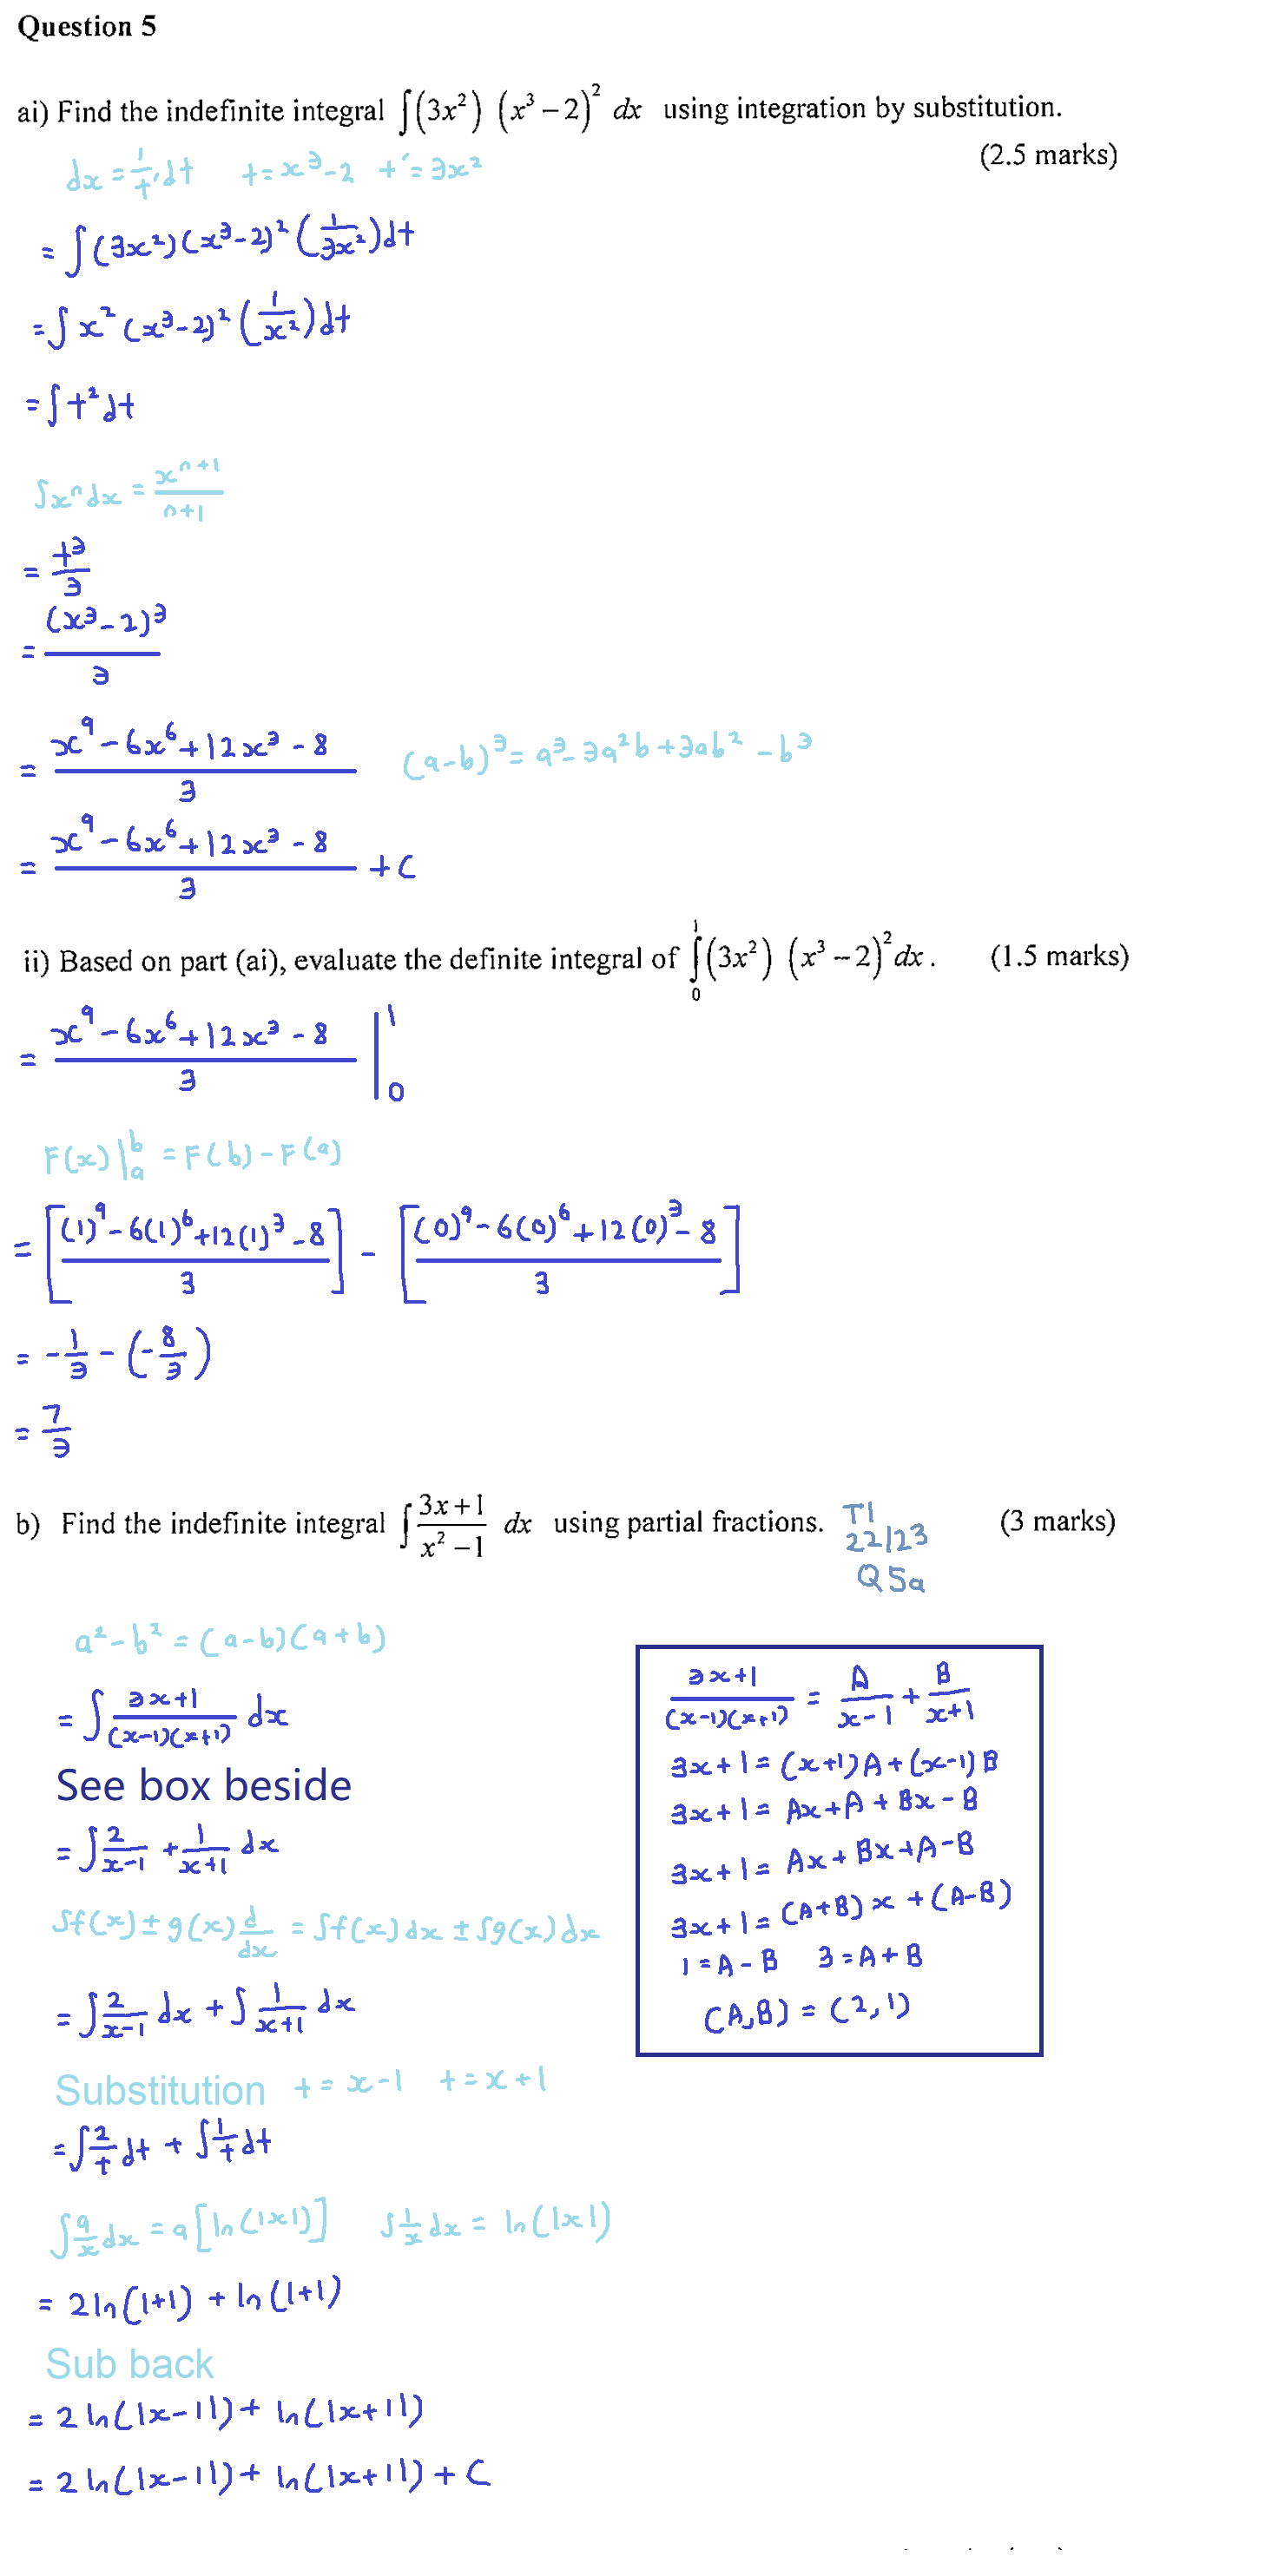 Question 5
ai) Find the indefinite integral ∫(3x²) (x³ – 2)² dx using integration by substitution.
(2.5 marks)
dx = 1/t' dt t = x³ - 2 t' = 3x²
= ∫(3x²)(x³-2)² (1/3x²) dt
= ∫ x² (x³-2)² (1/x²) dt
= ∫ t² dt
∫xⁿ dx = xⁿ⁺¹/n+1
= t³/3
= (x³-2)³/3
= x⁹ - 6x⁶ + 12x³ - 8/3 (a-b)³ = a³ - 3a²b + 3ab² - b³
= x⁹ - 6x⁶ + 12x³ - 8/3 + C
ii) Based on part (ai), evaluate the definite integral of ∫₀¹ (3x²) (x³ – 2)² dx . (1.5 marks)
= x⁹ - 6x⁶ + 12x³ - 8/3 |₀¹
F(x)|ₐᵇ = F(b) - F(a)
= [(1)⁹ - 6(1)⁶ + 12(1)³ - 8/3] - [(0)⁹ - 6(0)⁶ + 12(0)³ - 8/3]
= -1/3 - (-8/3)
= 7/3
b) Find the indefinite integral ∫ 3x+1/x² – 1 dx using partial fractions. (3 marks)
T1
22/23
Q5a
a² - b² = (a-b)(a+b)
= ∫ 3x+1/(x-1)(x+1) dx
See box beside
= ∫ 2/x-1 + 1/x+1 dx
∫f(x) ± g(x) d/dx = ∫f(x) dx ± ∫g(x) dx
= ∫ 2/x-1 dx + ∫ 1/x+1 dx
Substitution t = x-1 t = x+1
= ∫ 2/t dt + ∫ 1/t dt
∫ a/x dx = a[ln(|x|)] ∫ 1/x dx = ln(|x|)
= 2ln(|t|) + ln(|t|)
Sub back
= 2 ln(|x-1|) + ln(|x+1|)
= 2 ln(|x-1|) + ln(|x+1|) + C
3x+1/(x-1)(x+1) = A/x-1 + B/x+1
3x+1 = (x+1)A + (x-1)B
3x+1 = Ax+A+Bx-B
3x+1 = Ax+Bx+A-B
3x+1 = (A+B)x + (A-B)
1 = A-B 3 = A+B
(A,B) = (2,1)